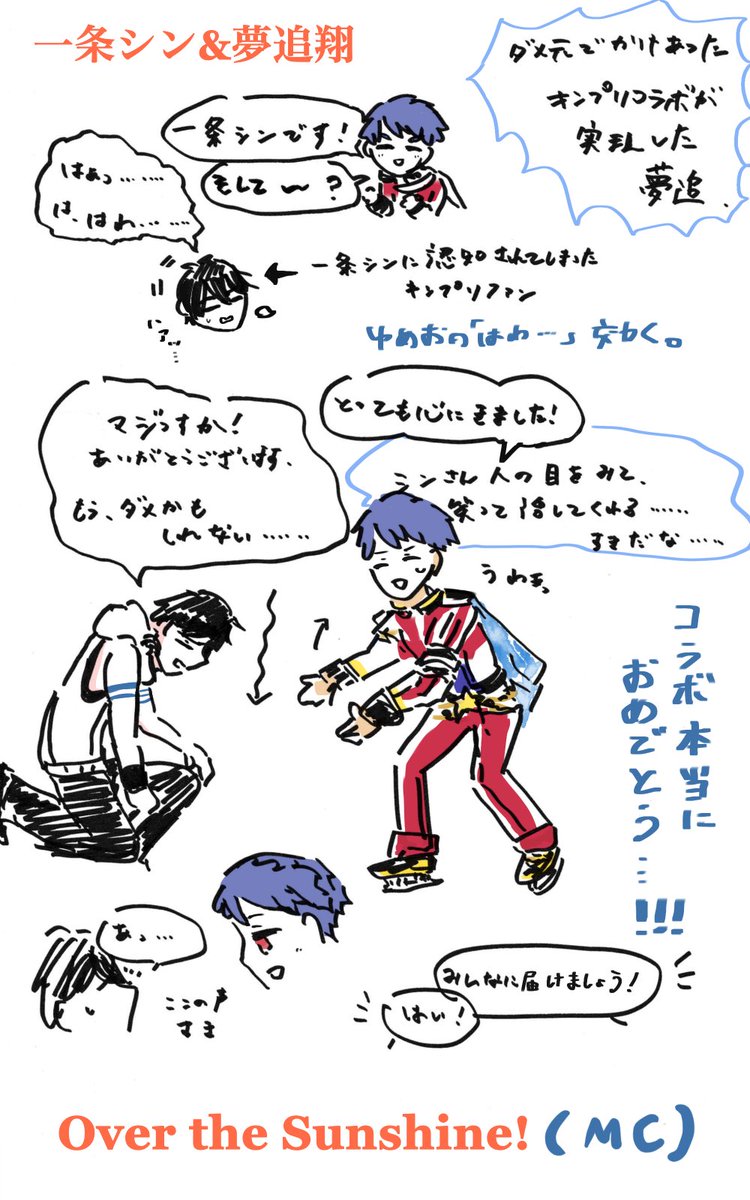 一条シン&夢追翔
ダメ元でかけあった
キンプリコラボが
実現した
夢追
一条シンです!
そして〜?
はぁっ………
は、はわ………
一条シンに認知されてしまった
キンプリファン
ゆめおの「はわ…」文かく。
マジっすか!
ありがとうございます、
もう、ダメかも
しれない……
とっても心にきました!
シンさん人の目をみて、
笑って
してくれる……
すきだな……
うわぁっ
コラボ本当に
おめでとう…!!!
あっ…
ここの声
すき
みんなに届けましょう!
はい!
Over the Sunshine! (MC)